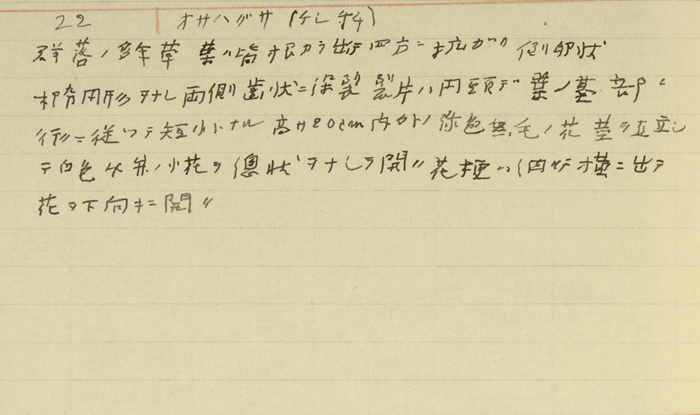 22 オサバグサ (ケシ科)
群落ノ多年草 葉ハ皆根カラ出デ四方ニ拡ガリ 倒卵状
楕円形ヲナシ両側歯状ニ深裂 裂片ハ円頭デ 葉ノ基部ニ
行クニ従ツテ短小トナル 高サ20cm内外ノ 無毛ノ花茎ヲ直立シ
テ白色 弁ノ小花ヲ總状ヲナシテ開ク 花梗ハ 横ニ出テ
花ヲ下向キニ開ク